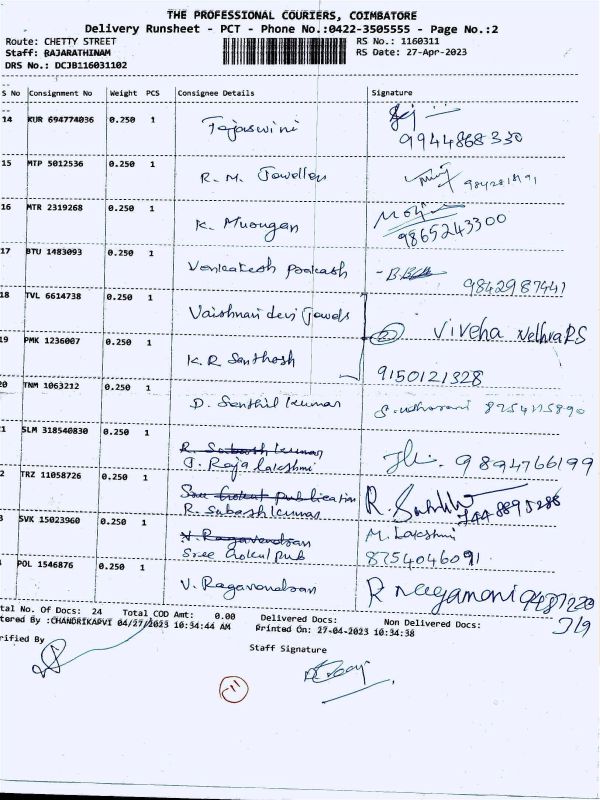 THE PROFESSIONAL COURIERS, COIMBATORE
Delivery Runsheet - PCT - Phone No.:0422-3505555 - Page No.:2
Route: CHETTY STREET
RS No.: 1160311
Staff: RAJARATHINAM
RS Date: 27-Apr-2023
DRS No.: DCJB116031102
S No Consignment No Weight PCS Consignee Details Signature
14 KUR 694774036 0.250 1 Tejaswini
9944868330
15 MTP 5012536 0.250 1 R. M. Jewellers
16 MTR 2319268 0.250 1 K. Murugan
9865243300
17 BTU 1483093 0.250 1 Venkatesh Prakash
9842987441
18 TVL 6614738 0.250 1 Vaishnavi devi Jewels
Viveha NethraRS
19 PMK 1236007 0.250 1 K.R Santhosh
9150121328
20 TNM 1063212 0.250 1 D. Senthil kumar
1 SLM 318540830 0.250 1 R. Subash kumar
J. Rajalakshmi 9894766199
2 TRZ 11058726 0.250 1 Sree Gokul publication
R. Subashkumar
3 SVK 15023960 0.250 1 V Ragavendran M. Lakshmi
Sree Gokul pub 8754046091
POL 1546876 0.250 1 V. Ragavendran R nagamani
tal No. Of Docs: 24 Total COD Amt: 0.00 Delivered Docs: Non Delivered Docs:
tered By :CHANDRIKAPVI 04/27/2023 10:34:44 AM Printed On: 27-04-2023 10:34:38
rified By
Staff Signature
-11